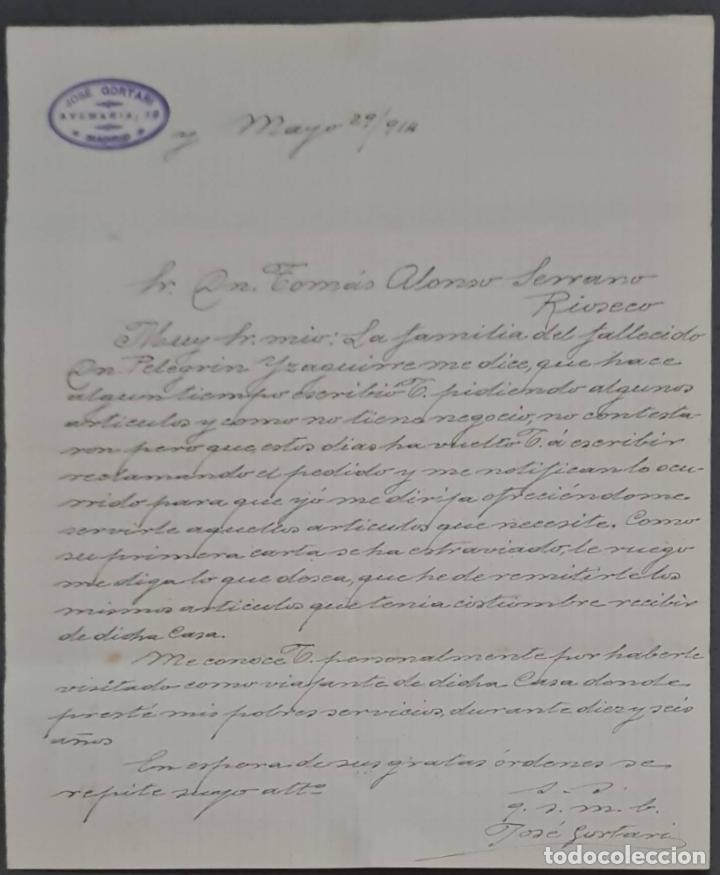 JOSÉ GORTARI
AVEMARIA, 19
MADRID
y Mayo 29/914
Sr. Dn. Tomás Alonso Serrano
Rioseco
Muy Sr. mio: La familia del fallecido
Dn. Pelegrin Yzaguirre me dice, que hace
algun tiempo escribió V. pidiendo algunos
articulos y como no tiene negocio, no contesta-
ron pero que estos dias ha vuelto V. á escribir
reclamando el pedido y me notifican lo ocu-
rrido para que yó me dirija ofreciéndome
servirle aquellos articulos que necesite. Como
su primera carta se ha estraviado, le ruego
me diga lo que desea, que he de remitirle los
mismos articulos que tenia costumbre recibir
de dicha Casa.
Me conoce V. personalmente por haberle
visitado como viajante de dicha Casa donde
presté mis pobres servicios, durante diez y seis
años
En espera de sus gratas órdenes se
repite suyo atto
S. S.
q. s. m. b.
José Gortari
todocoleccion